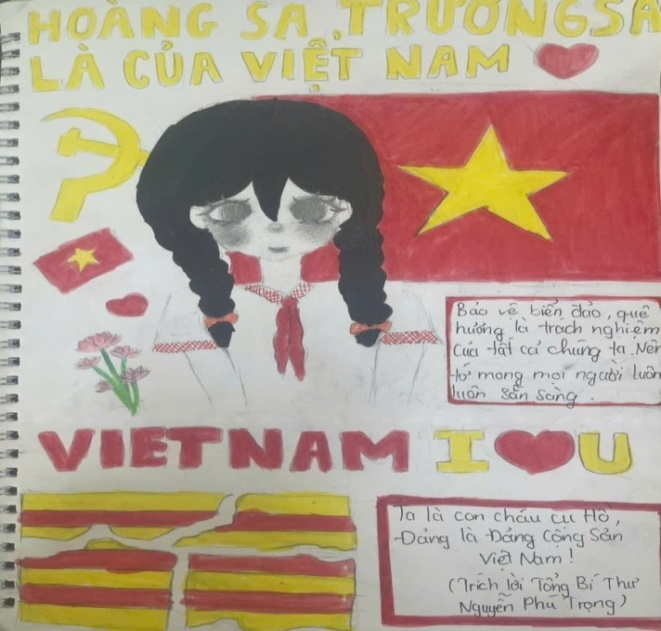 HOÀNG SA, TRƯỜNG SA
LÀ CỦA VIỆT NAM
Bảo vệ biển đảo, quê
hướng là trách nghiệm
của tất cả chúng ta. Nên
tớ mong mọi người luôn
luôn sẵn sàng.
VIETNAM I ❤ U
Ta là con cháu cụ Hồ,
Đảng là Đảng Cộng Sản
Việt Nam!
(Trích lời Tổng Bí Thư
Nguyễn Phú Trọng)